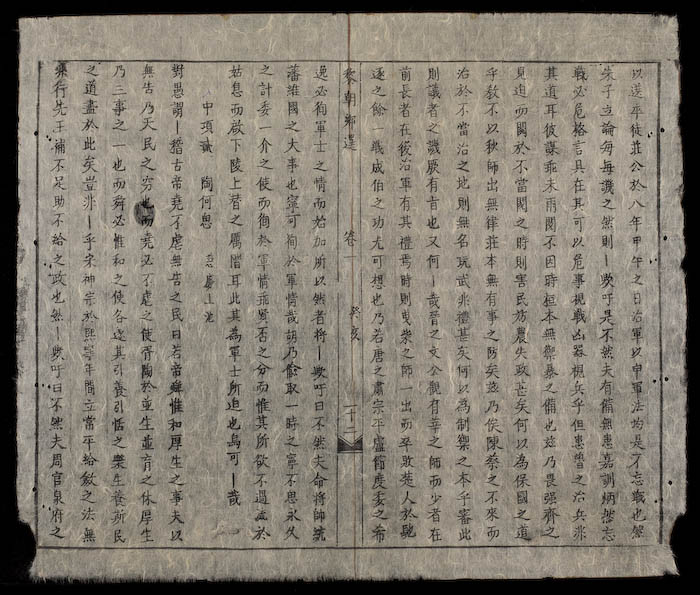 以選卒徒莊公於八年甲午之日治軍以申軍法均是不忘戰也然
朱子立論每每譏之然則｜歟吁是不然夫有備無患嘉訓炳然忘
戰必危格言具在其可以危事視戰凶器視兵乎但惠魯之治兵非
其道耳彼謀乖未雨閱不因時桓本無禦暴之備也茲乃畏強齊之
見迫而閱於不當閱之時則害民妨農失政甚矣何以為保國之道
乎教不以秋師出無律莊本無有事之防矣茲乃俟陳蔡之不來而
治於不當治之地則無名玩武非禮甚矣何以為制禦之本乎審此
則議者之譏厥有旨也又何｜哉晉之文公觀有莘之師而少者在
前長者在後治軍有其禮焉時則曳柴之師一出而卒敗楚人於馳
逐之餘一戰成伯之功尤可想也乃若唐之肅宗平盧節度委之希
黎朝鄉選 卷一 癸亥 二十二
逸必徇軍士之情而若加所以然者將｜歟吁曰不然夫命將帥統
藩維國之大事也寧可徇於軍情哉胡乃僥取一時之寧不思永久
之計委一介之使而徇於軍情乖賢否之分而惟其所欲不過於
姑息而啟下陵上替之厲階耳此其為軍士所迫也烏可｜哉
中項議 陶何恩 慈廉上池
對愚謂｜稽古帝堯不虐無告之民曰若帝舜惟和厚生之事夫以
無告乃天民之窮也而堯必不虐之使胥陶於並生並育之休厚生
乃三事之一也而舜必惟和之使各遂其引養引恬之樂生養斯民
之道盡於此矣豈非｜乎宋神宗於熙寧年間立常平給斂之法無
樂行先王補不足助不給之政也然｜歟吁曰不然夫周官泉府之